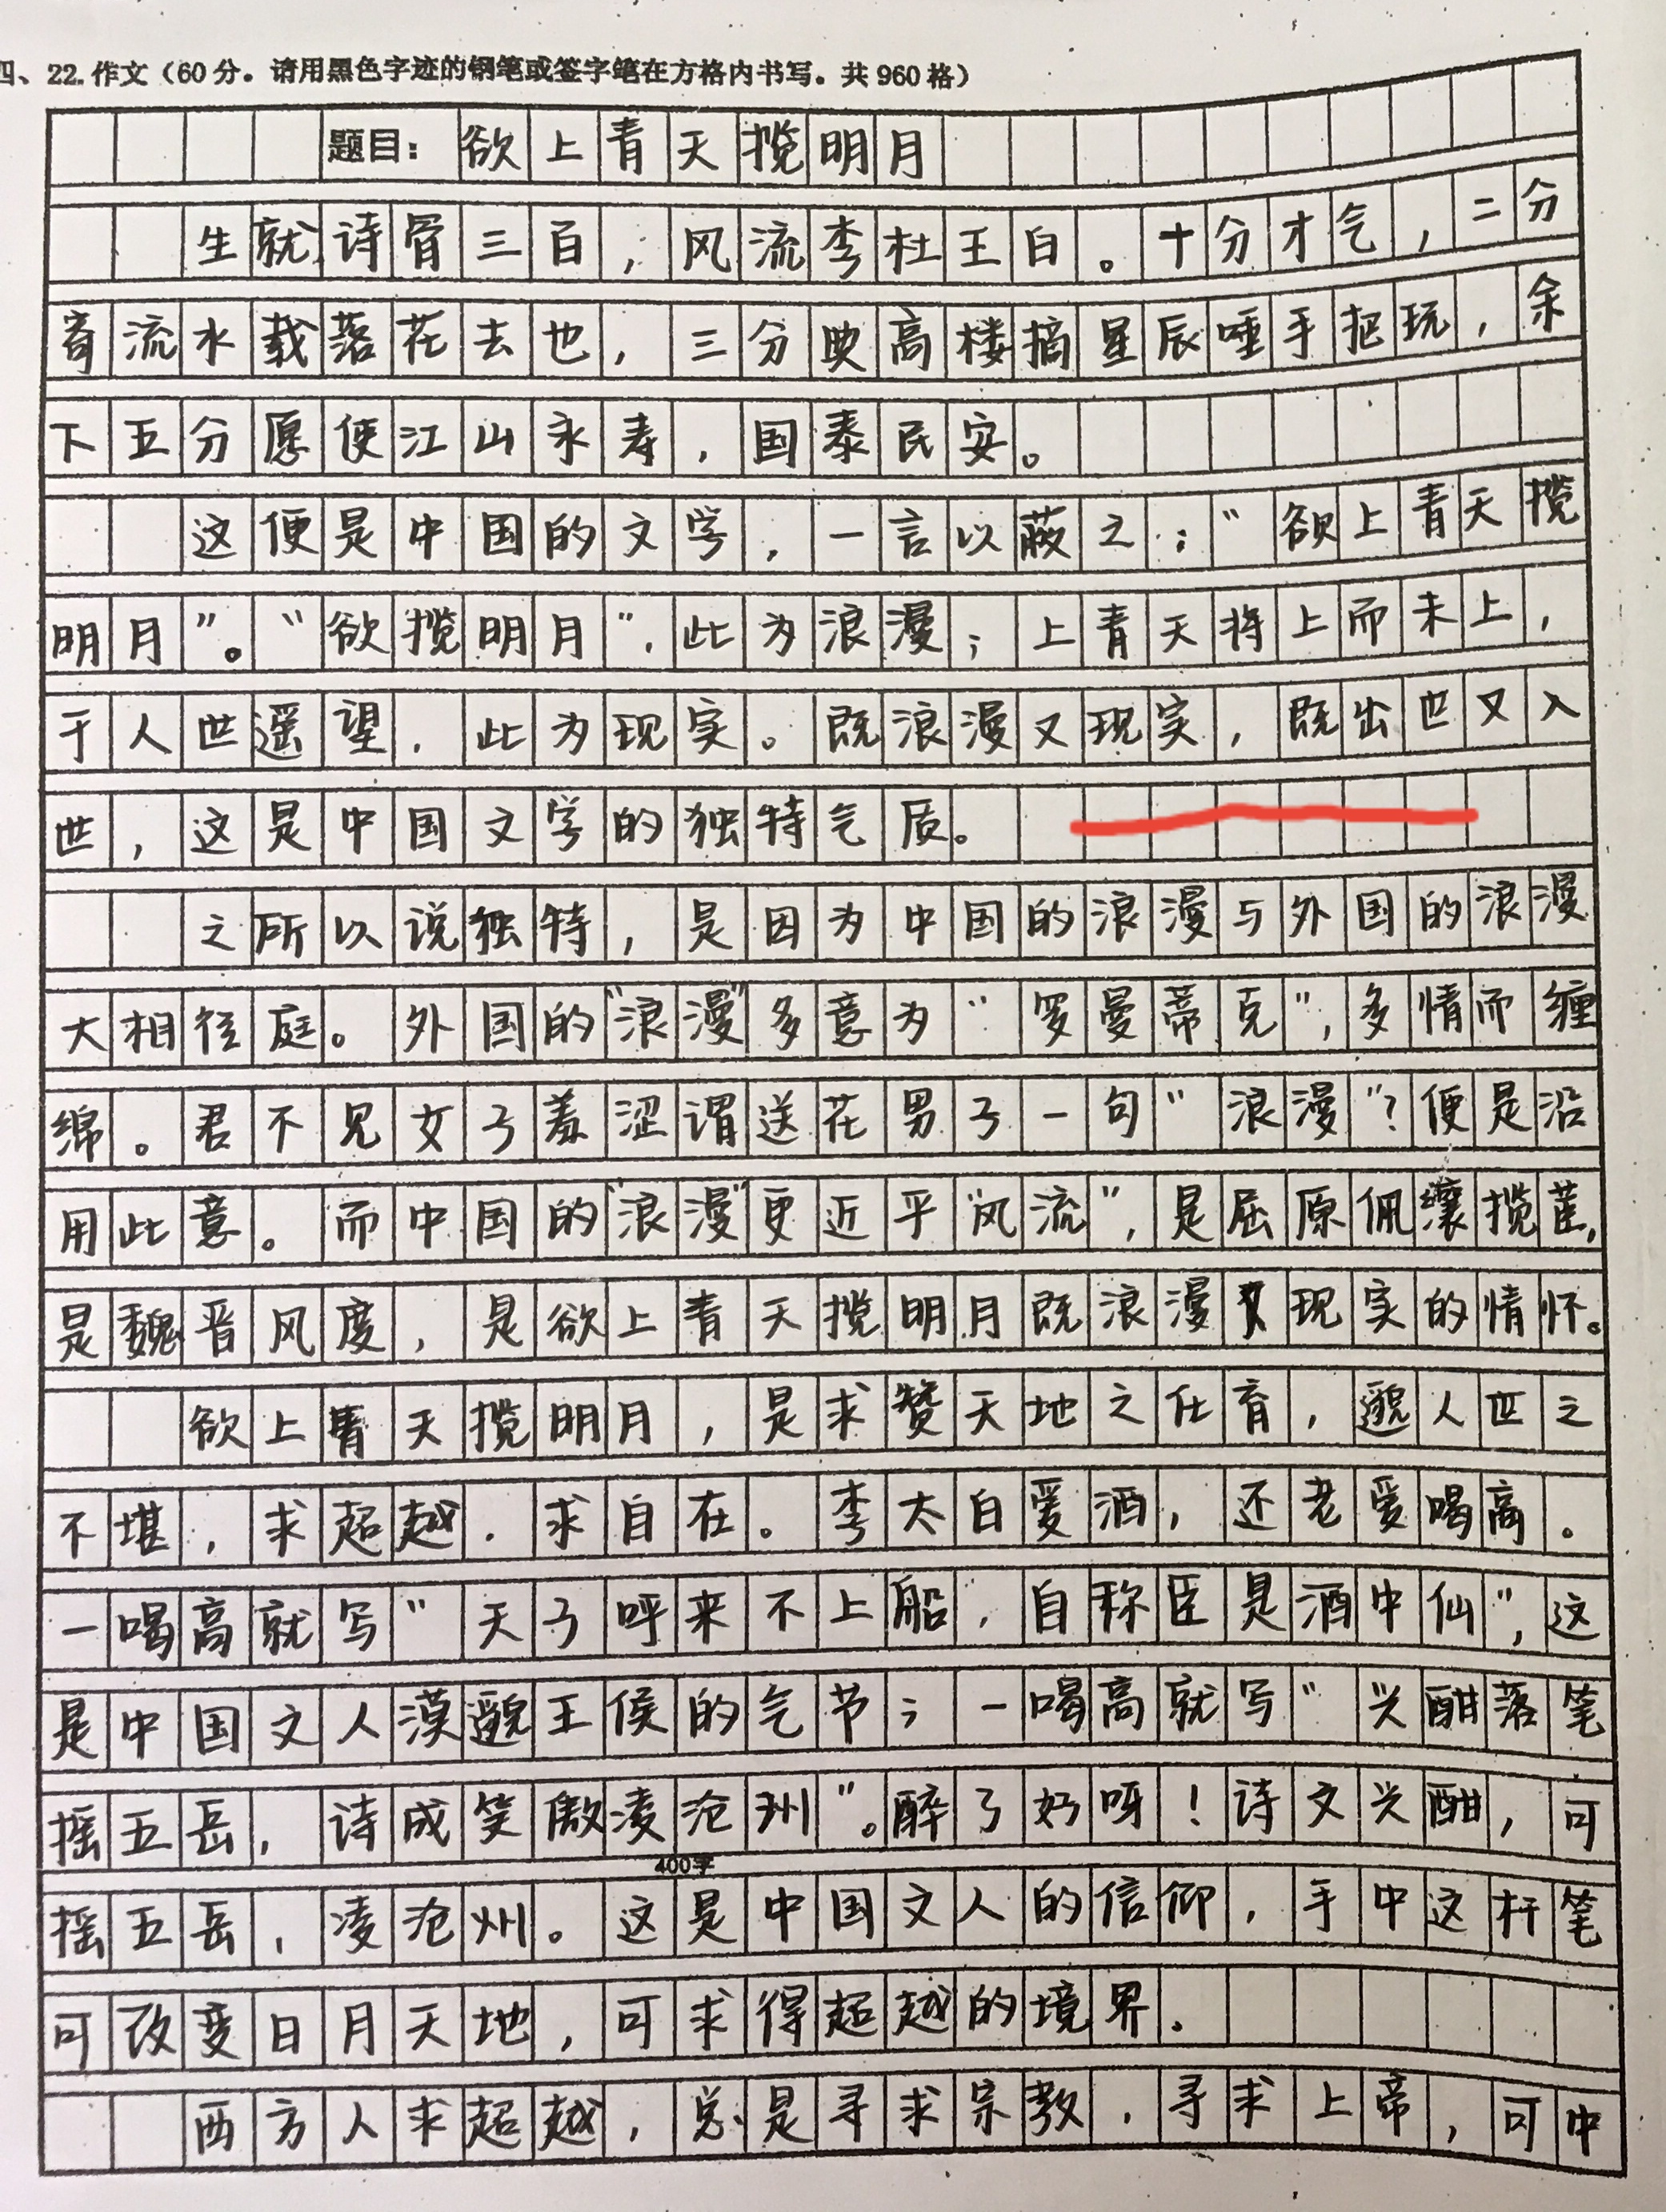 四、22.作文(60分。请用黑色字迹的钢笔或签字笔在方格内书写。共960格)
题目:欲上青天揽明月
生就诗骨三百,风流李杜王白。十分才气,二分
寄流水载落花去也,三分与高楼摘星辰唾手把玩,余
下五分愿使江山永寿,国泰民安。
这便是中国的文学,一言以蔽之:“欲上青天揽
明月”。“欲揽明月”,此为浪漫;上青天将上而未上,
于人世遥望,此为现实。既浪漫又现实,既出世又入
世,这是中国文学的独特气质。
之所以说独特,是因为中国的浪漫与外国的浪漫
大相径庭。外国的“浪漫”多意为“罗曼蒂克”,多情而缠
绵。君不见女子羞涩谓送花男子一句“浪漫”?便是沿
用此意。而中国的“浪漫”更近乎“风流”,是屈原佩纕揽茝,
是魏晋风度,是欲上青天揽明月既浪漫又现实的情怀。
欲上青天揽明月,是求赞天地之化育,邈人世之
不堪,求超越,求自在。李太白爱酒,还老爱喝高。
一喝高就写“天子呼来不上船,自称臣是酒中仙”,这
是中国文人漠邈王侯的气节;一喝高就写“兴酣落笔
摇五岳,诗成笑傲凌沧州”。醉了好呀!诗文兴酣,可
400字
摇五岳,凌沧州。这是中国文人的信仰,手中这杆笔
可改变日月天地,可求得超越的境界。
西方人求超越,总是寻求宗教,寻求上帝,可中